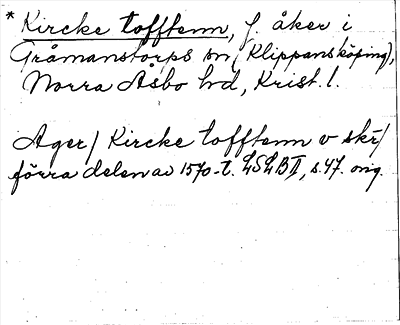 * Kircke tofftenn, f. åker i
Gråmanstorps sn (Klippans köping),
Norra Åsbo hd, Krist. l.
Ager / Kircke tofftenn v skr /
förra delen av 1570-t. LSLB II, s. 47. orig.